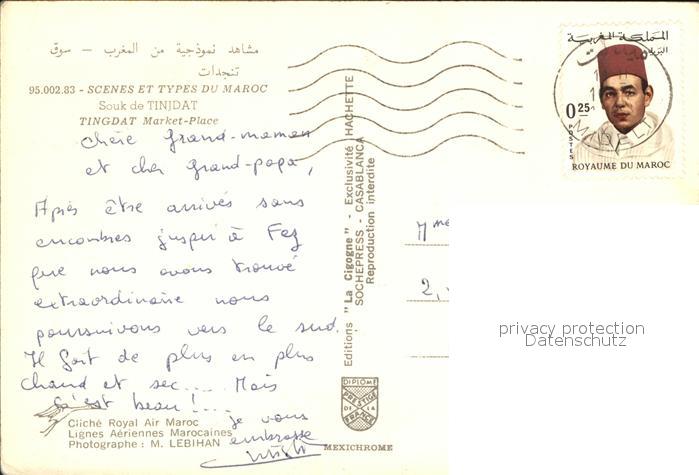 مشاهد نموذجية من المغرب – سوق
تنجدات
95.002.83 - SCENES ET TYPES DU MAROC
Souk de TINJDAT
TINGDAT Market-Place
Chère Grand-maman
et cher Grand-papa,
Après être arrivés sans
encombres jusqu'à Fez
que nous avons trouvé
extraordinaire nous
poursuivons vers le sud.
Il fait de plus en plus
chaud et sec.... Mais
c'est beau!...
je vous
embrasse
Cliché Royal Air Maroc
Lignes Aériennes Marocaines
Photographe : M. LEBIHAN
Editions "La Cigogne" - Exclusivité HACHETTE
SOCHEPRESS - CASABLANCA
Reproduction interdite
DIPLOME
PRESTIGE
DE LA
FRANCE
MEXICHROME
المملكة المغربية
البريد
0.25
POSTES
ROYAUME DU MAROC
Mme
2,
privacy protection
Datenschutz